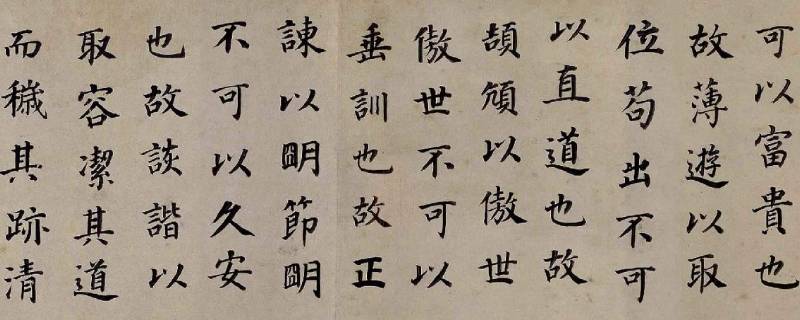 可以富貴也
故薄遊以取
位苟出不可
以直道也故
頡頏以傲世
傲世不可以
垂訓也故正
諫以明節明
不可以久安
也故詼諧以
取容潔其道
而穢其跡清